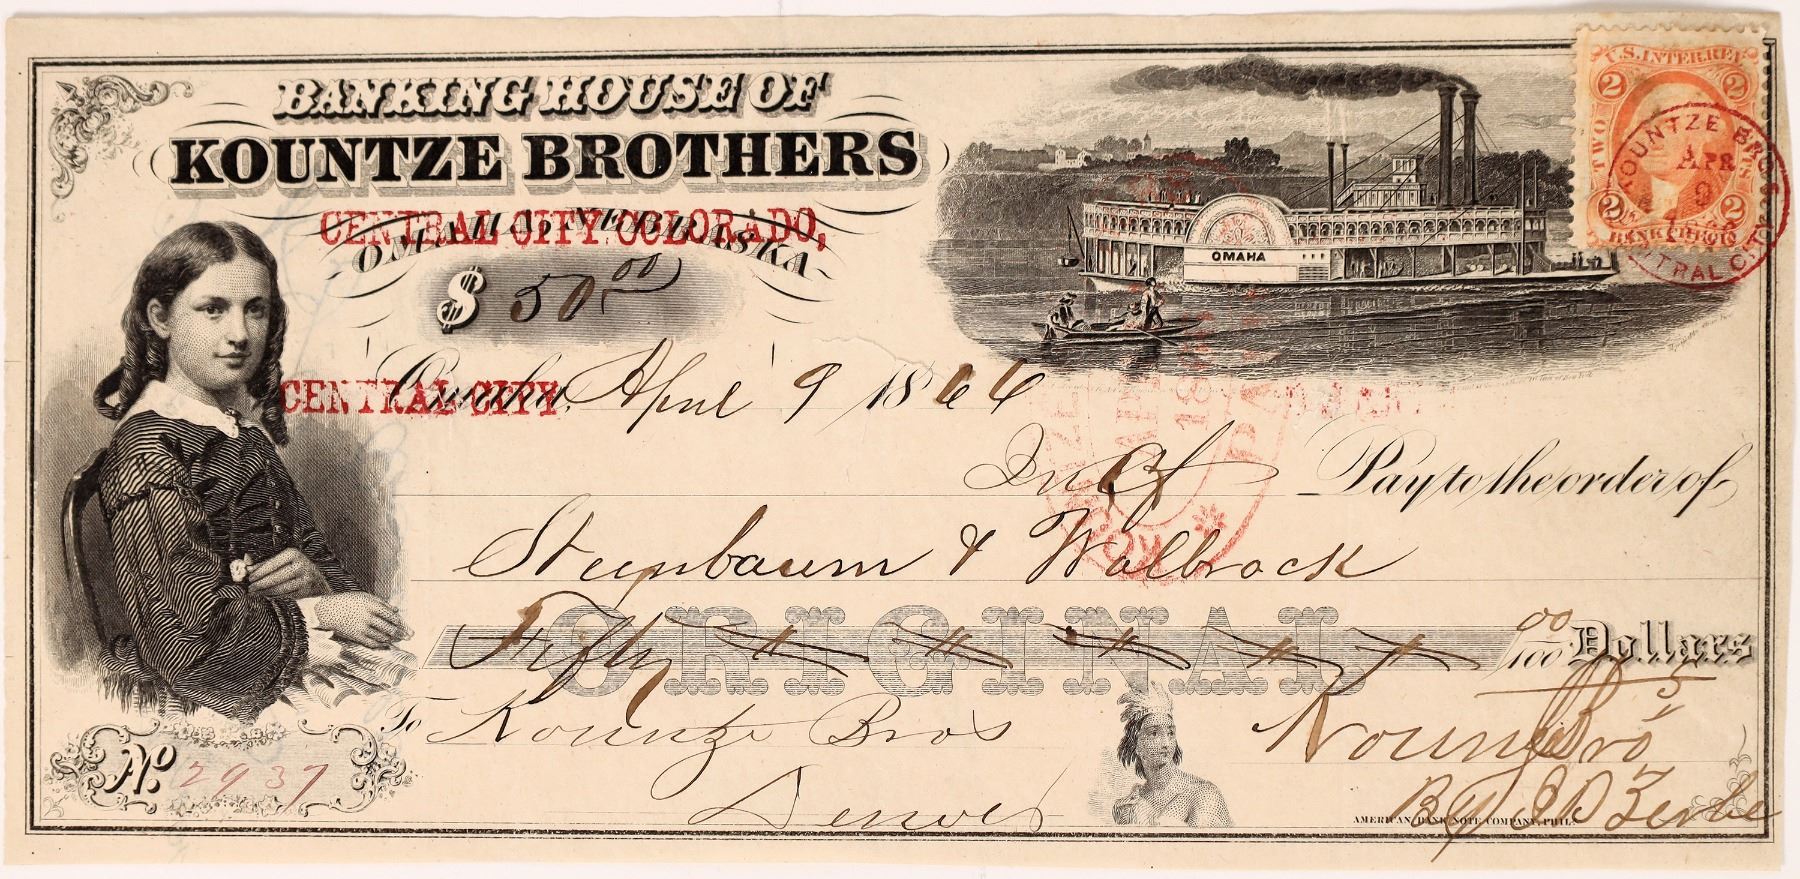 BANKING HOUSE OF
KOUNTZE BROTHERS
CENTRAL CITY COLORADO,
OMAHA, NEBRASKA
$ 50.00
CENTRAL CITY
Omaha, April 9 1866
Pay to the order of
Steinbaum & Walbrock
ORIGINAL
Fifty 00/100 Dollars
To Kountze Bros
Denver
Kountze Bros
By
No. 2937
AMERICAN BANK NOTE COMPANY, PHIL.
OMAHA
U.S. INTER. REV.
2 2
TWO CTS
2 2
BANK CHECK
KOUNTZE BRO
APR
9